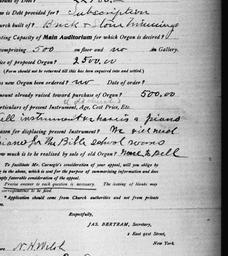 is Debt provided for? Subscription
urch built of? Brick & Stone trimming
ting Capacity of Main Auditorium for which Organ is desired?
omprising 500 on floor and no in Gallery.
rice of proposed Organ? 2500.00
(Form should not be returned till this has been enquired into and settled)
s new Organ been ordered? no Date of order?
mount already raised toward purchase of Organ? 500.00
rticulars of present Instrument, Age, Cost Price, Etc.
ll instrument we have is a piano
ason for displacing present Instrument? We will need
piano for the Bible school rooms
ow much is to be realised by sale of old Organ?
To facilitate Mr. Carnegie's consideration of your appeal, will you oblig
y in the above, which is sent for the purpose of summarising information and des
mply favorable consideration of the appeal.
Precise answer to each question is necessary. The issuing of blanks may
correspondence to be filed.
Application should come from Church authorities and not from private
Respectfully,
JAS. BERTRAM, Secretary,
2 East 91st Street,
New York
N. H. Welsh